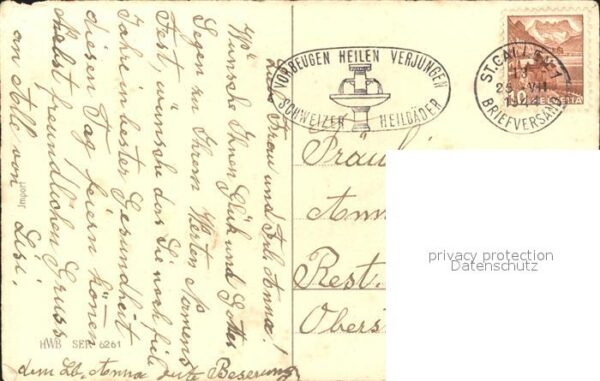 Wa
Liebe Frau und Frl. Anna!
Wünsche Ihnen Glük und Gottes
Segen zu Ihrem Werten Namens
Fest, wünsche das Sie noch file
Jahre in bester Gesundheit
diesen Tag feiern könen
Nebst freundlichen Gruss
an Alle von Lisi.
dem Lb. Anna gute Beserung
Import
HWB SER 6261
VORBEUGEN HEILEN VERJÜNGEN
SCHWEIZER HEILBÄDER
ST. GALLEN 1
13
25. VII
BRIEFVERSAND
HELVETIA
Fräul
Ann
Rest.
Obers
privacy protection
Datenschutz